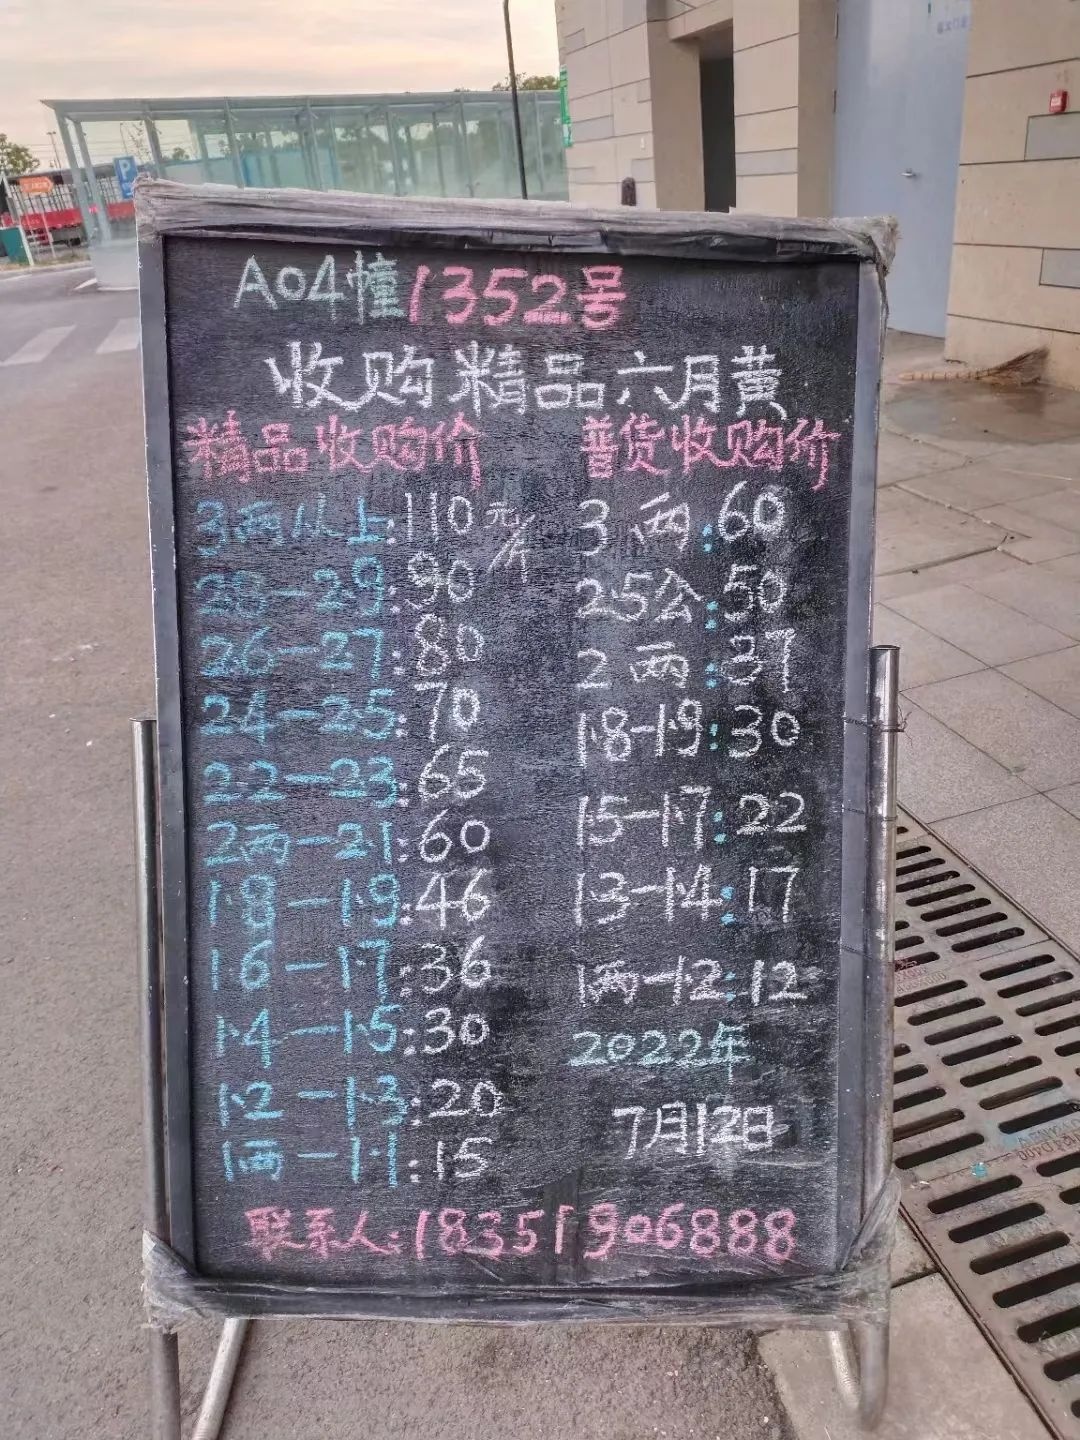 A04幢1352号
收购精品六月黄
精品收购价
3两以上:110元/斤
28-29:90
26-27:80
24-25:70
22-23:65
2两-21:60
1.8-1.9:46
1.6-1.7:36
1.4-1.5:30
1.2-1.3:20
1两-1.1:15
普货收购价
3两:60
2.5公:50
2两:37
1.8-1.9:30
1.5-1.7:22
1.3-1.4:17
1两-1.2:12
2022年
7月12日
联系人:18351906888
P